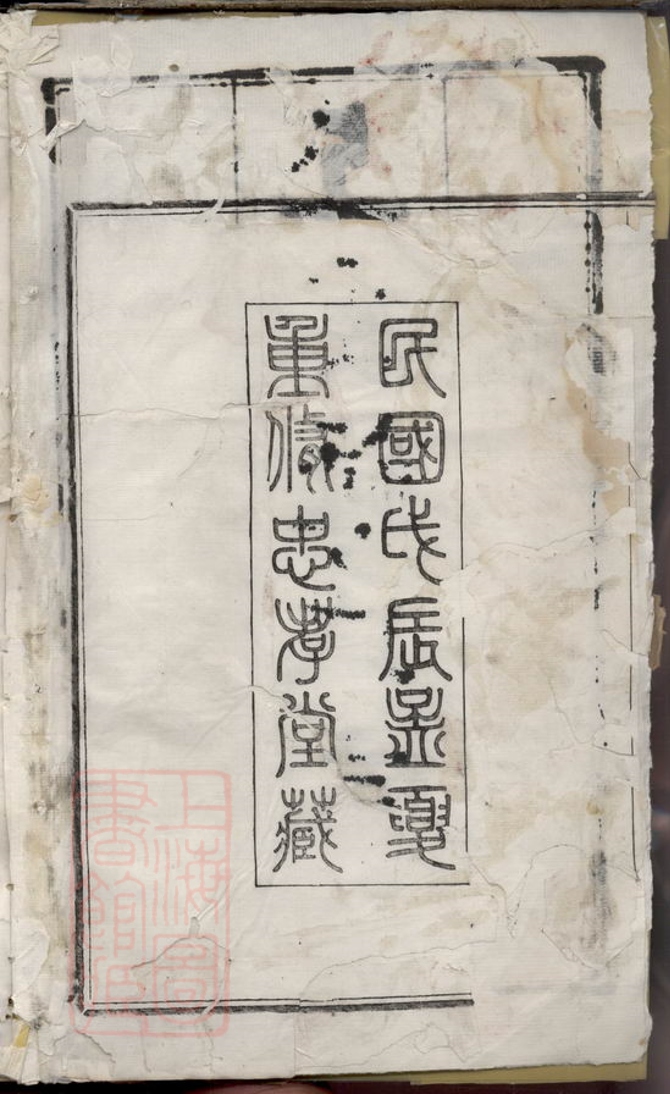 民國戊辰孟夏
重修忠孝堂藏
上海圖
書館藏